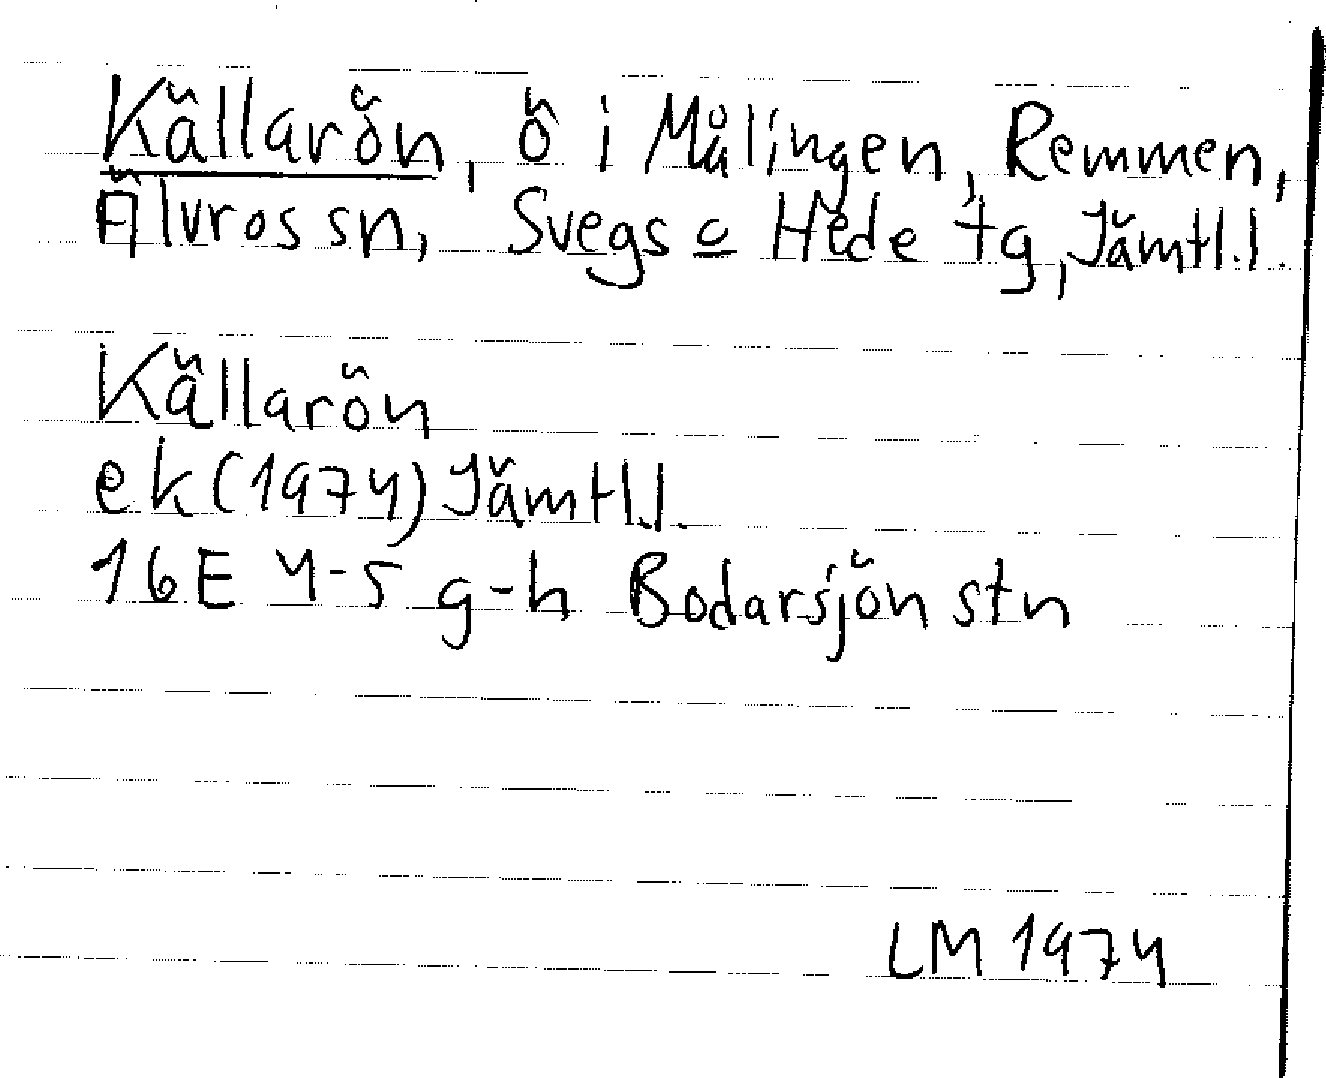 Källarön, ö i Målingen, Remmen,
Älvros sn, Svegs o Hede tg, Jämtl.l.
Källarön
ek (1974) Jämtl.l.
16E 4-5 g-h Bodarsjön stn
LM 1974